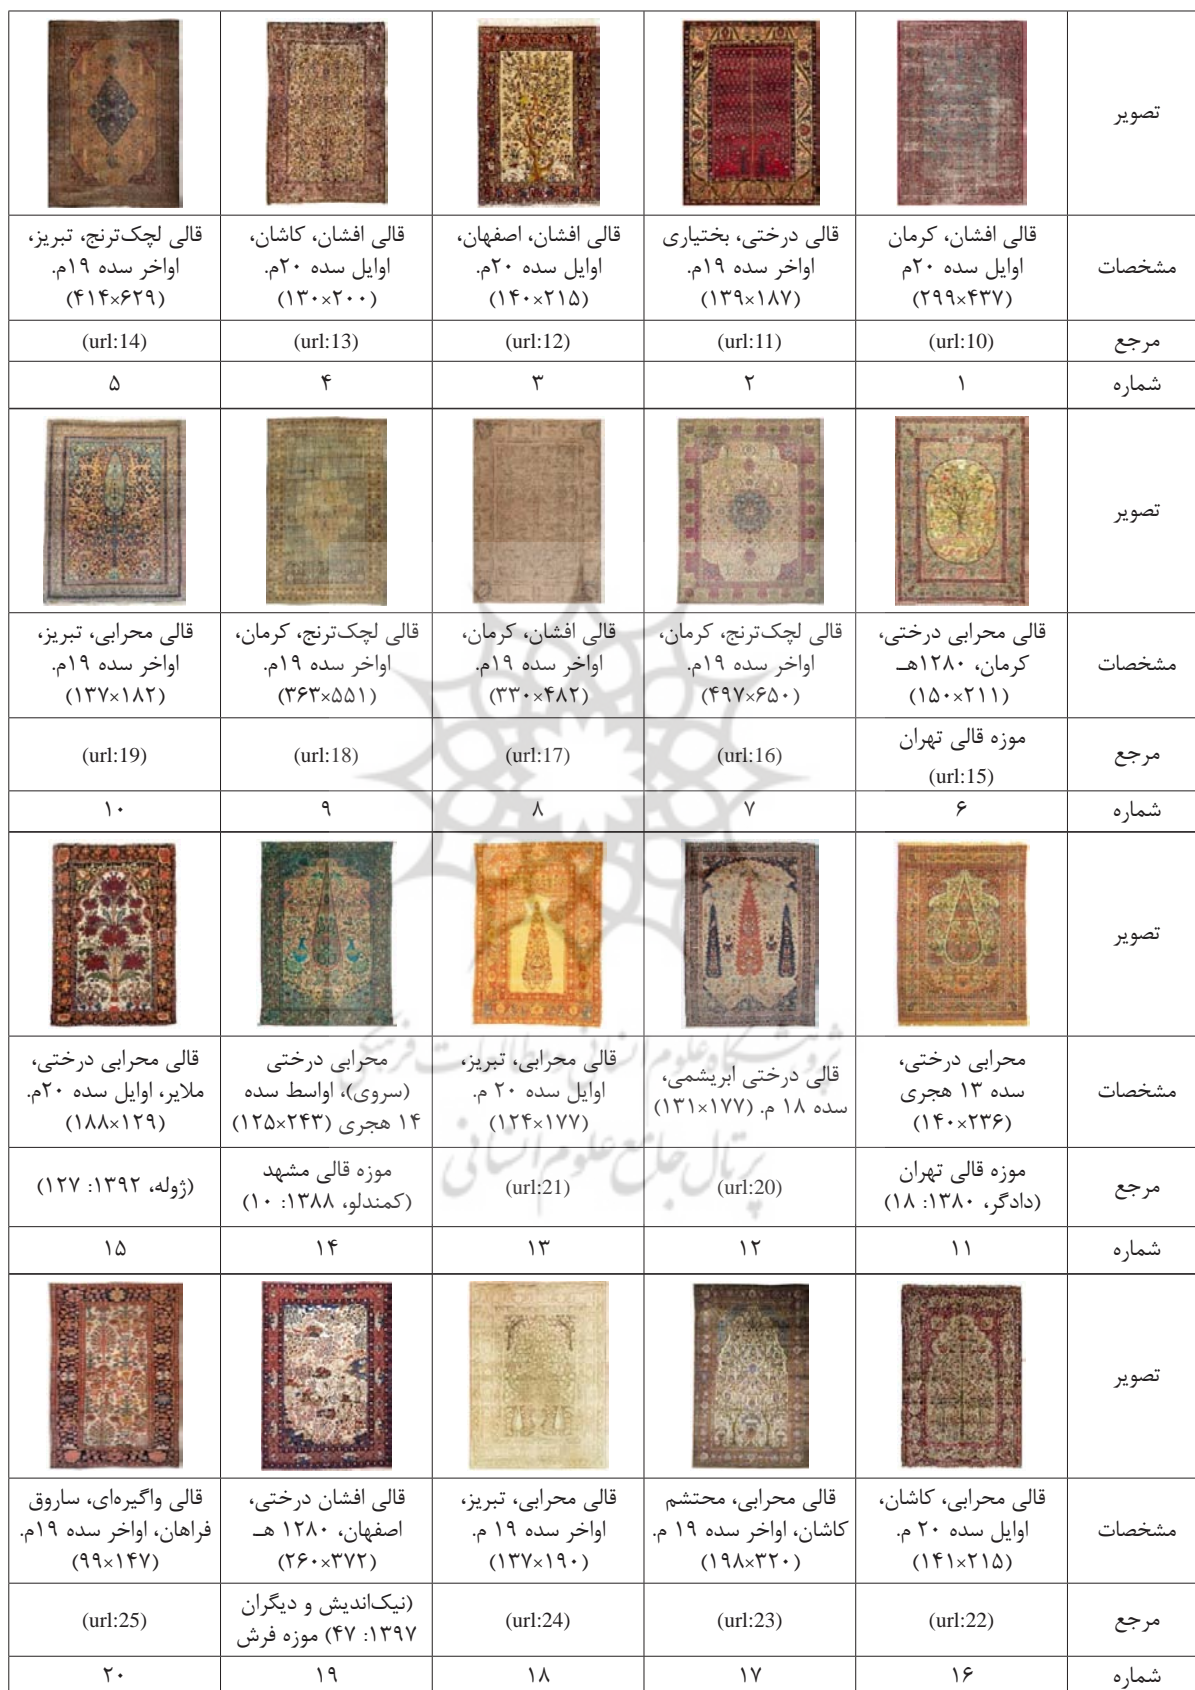 تصویر
مشخصات
قالی افشان، کرمان
اوایل سده ۲۰م
(۲۹۹×۴۳۷)
قالی درختی، بختیاری
اواخر سده ۱۹م.
(۱۳۹×۱۸۷)
قالی افشان، اصفهان،
اوایل سده ۲۰م.
(۱۴۰×۲۱۵)
قالی افشان، کاشان،
اوایل سده ۲۰م.
(۱۳۰×۲۰۰)
قالی لچک‌ترنج، تبریز،
اواخر سده ۱۹م.
(۴۱۴×۶۲۹)
مرجع
(url:10)
(url:11)
(url:12)
(url:13)
(url:14)
شماره
۱
۲
۳
۴
۵
تصویر
مشخصات
قالی محرابی درختی،
کرمان، ۱۲۸۰هـ
(۱۵۰×۲۱۱)
قالی لچک‌ترنج، کرمان،
اواخر سده ۱۹م.
(۴۹۷×۶۵۰)
قالی افشان، کرمان،
اواخر سده ۱۹م.
(۳۳۰×۴۸۲)
قالی لچک‌ترنج، کرمان،
اواخر سده ۱۹م.
(۳۶۳×۵۵۱)
قالی محرابی، تبریز،
اواخر سده ۱۹م.
(۱۳۷×۱۸۲)
مرجع
موزه قالی تهران
(url:15)
(url:16)
(url:17)
(url:18)
(url:19)
شماره
۶
۷
۸
۹
۱۰
تصویر
مشخصات
محرابی درختی،
سده ۱۳ هجری
(۱۴۰×۲۳۶)
قالی درختی ابریشمی،
سده ۱۸ م. (۱۳۱×۱۷۷)
قالی محرابی، تبریز،
اوایل سده ۲۰ م.
(۱۲۴×۱۷۷)
محرابی درختی
(سروی)، اواسط سده
۱۴ هجری (۱۲۵×۲۴۳)
قالی محرابی درختی،
ملایر، اوایل سده ۲۰م.
(۱۸۸×۱۲۹)
مرجع
موزه قالی تهران
(دادگر، ۱۳۸۰: ۱۸)
(url:20)
(url:21)
موزه قالی مشهد
(کمندلو، ۱۳۸۸: ۱۰)
(ژوله، ۱۳۹۲: ۱۲۷)
شماره
۱۱
۱۲
۱۳
۱۴
۱۵
پژوهشگاه علوم انسانی و مطالعات فرهنگی
پرتال جامع علوم انسانی
تصویر
مشخصات
قالی محرابی، کاشان،
اوایل سده ۲۰ م.
(۱۴۱×۲۱۵)
قالی محرابی، محتشم
کاشان، اواخر سده ۱۹ م.
(۱۹۸×۳۲۰)
قالی محرابی، تبریز،
اواخر سده ۱۹ م.
(۱۳۷×۱۹۰)
قالی افشان درختی،
اصفهان، ۱۲۸۰ هـ
(۲۶۰×۳۷۲)
قالی واگیره‌ای، ساروق
فراهان، اواخر سده ۱۹م.
(۹۹×۱۴۷)
مرجع
(url:22)
(url:23)
(url:24)
(نیک‌اندیش و دیگران
۱۳۹۷: ۴۷) موزه فرش
(url:25)
شماره
۱۶
۱۷
۱۸
۱۹
۲۰